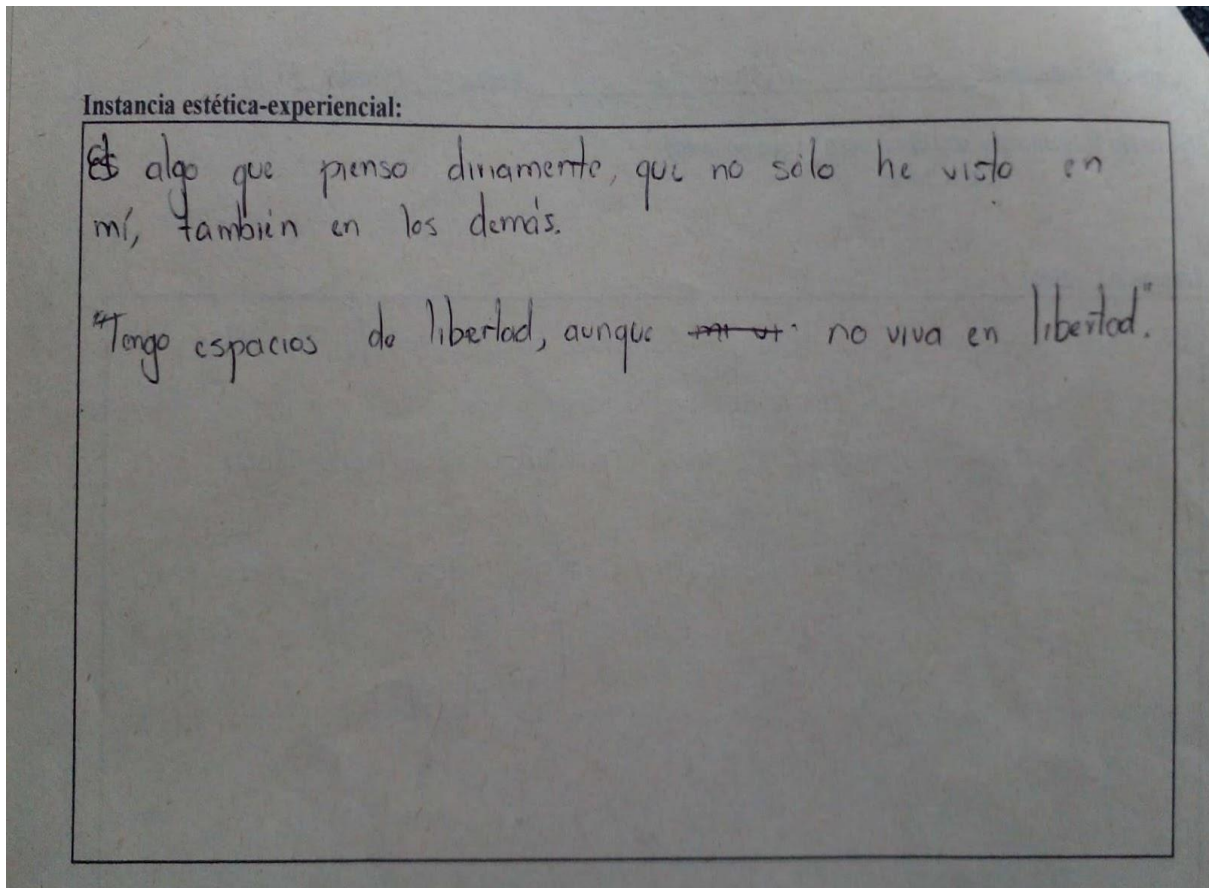 Instancia estética-experiencial:
Es algo que pienso diriamente, que no sólo he visto en
mí, también en los demás.
"Tengo espacios de libertad, aunque no viva en libertad".